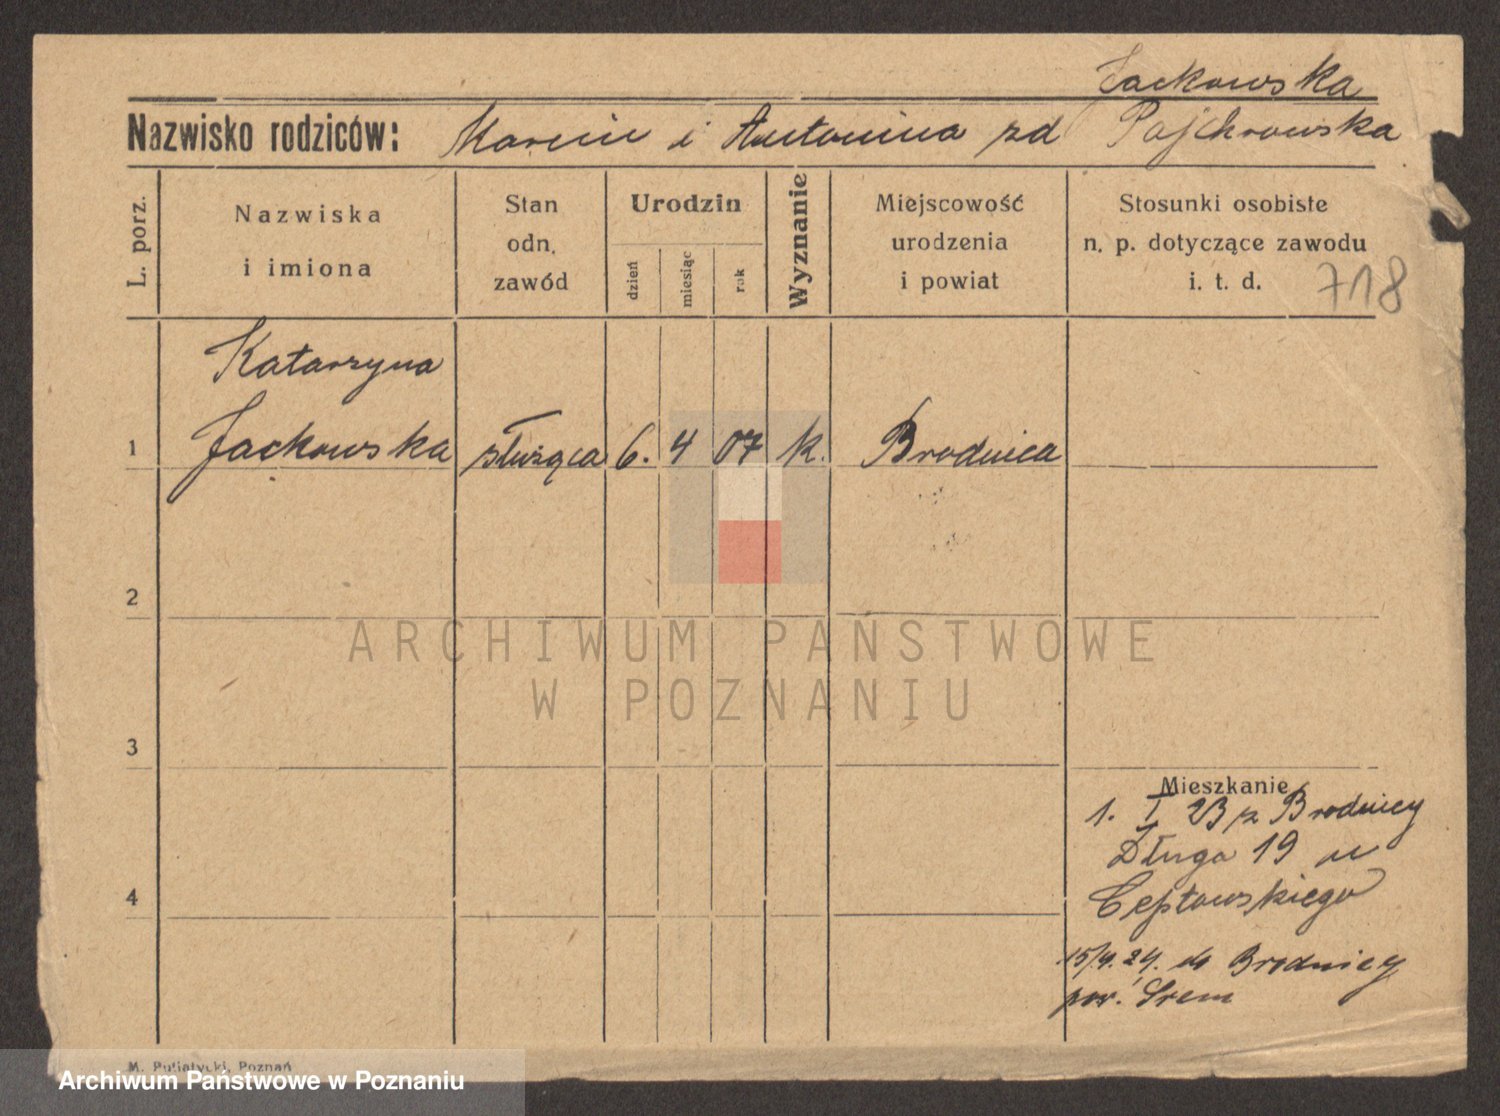 Jackowska
Nazwisko rodziców: Marcin i Antonina zd Pajchrowska
L. porz.
Nazwiska
i imiona
Stan
odn.
zawód
Urodzin
dzień
miesiąc
rok
Wyznanie
Miejscowość
urodzenia
i powiat
Stosunki osobiste
n. p. dotyczące zawodu
i. t. d.
718
Katarzyna
1 Jackowska służąca 6. 4 07 k. Brodnica
2
ARCHIWUM PAŃSTWOWE
W POZNANIU
3
Mieszkanie
1. I 23 z Brodnicy
Długa 19 u
4
Cepłowskiego
15/4. 24. do Brodnicy
pow. Śrem
M. Putiatycki, Poznań
Archiwum Państwowe w Poznaniu